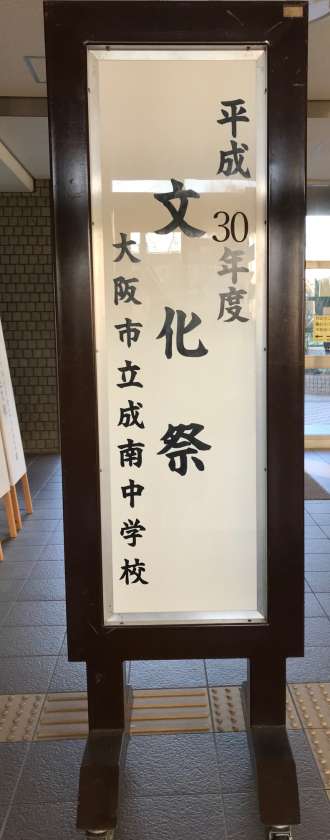 平成30年度
文化祭
大阪市立成南中学校